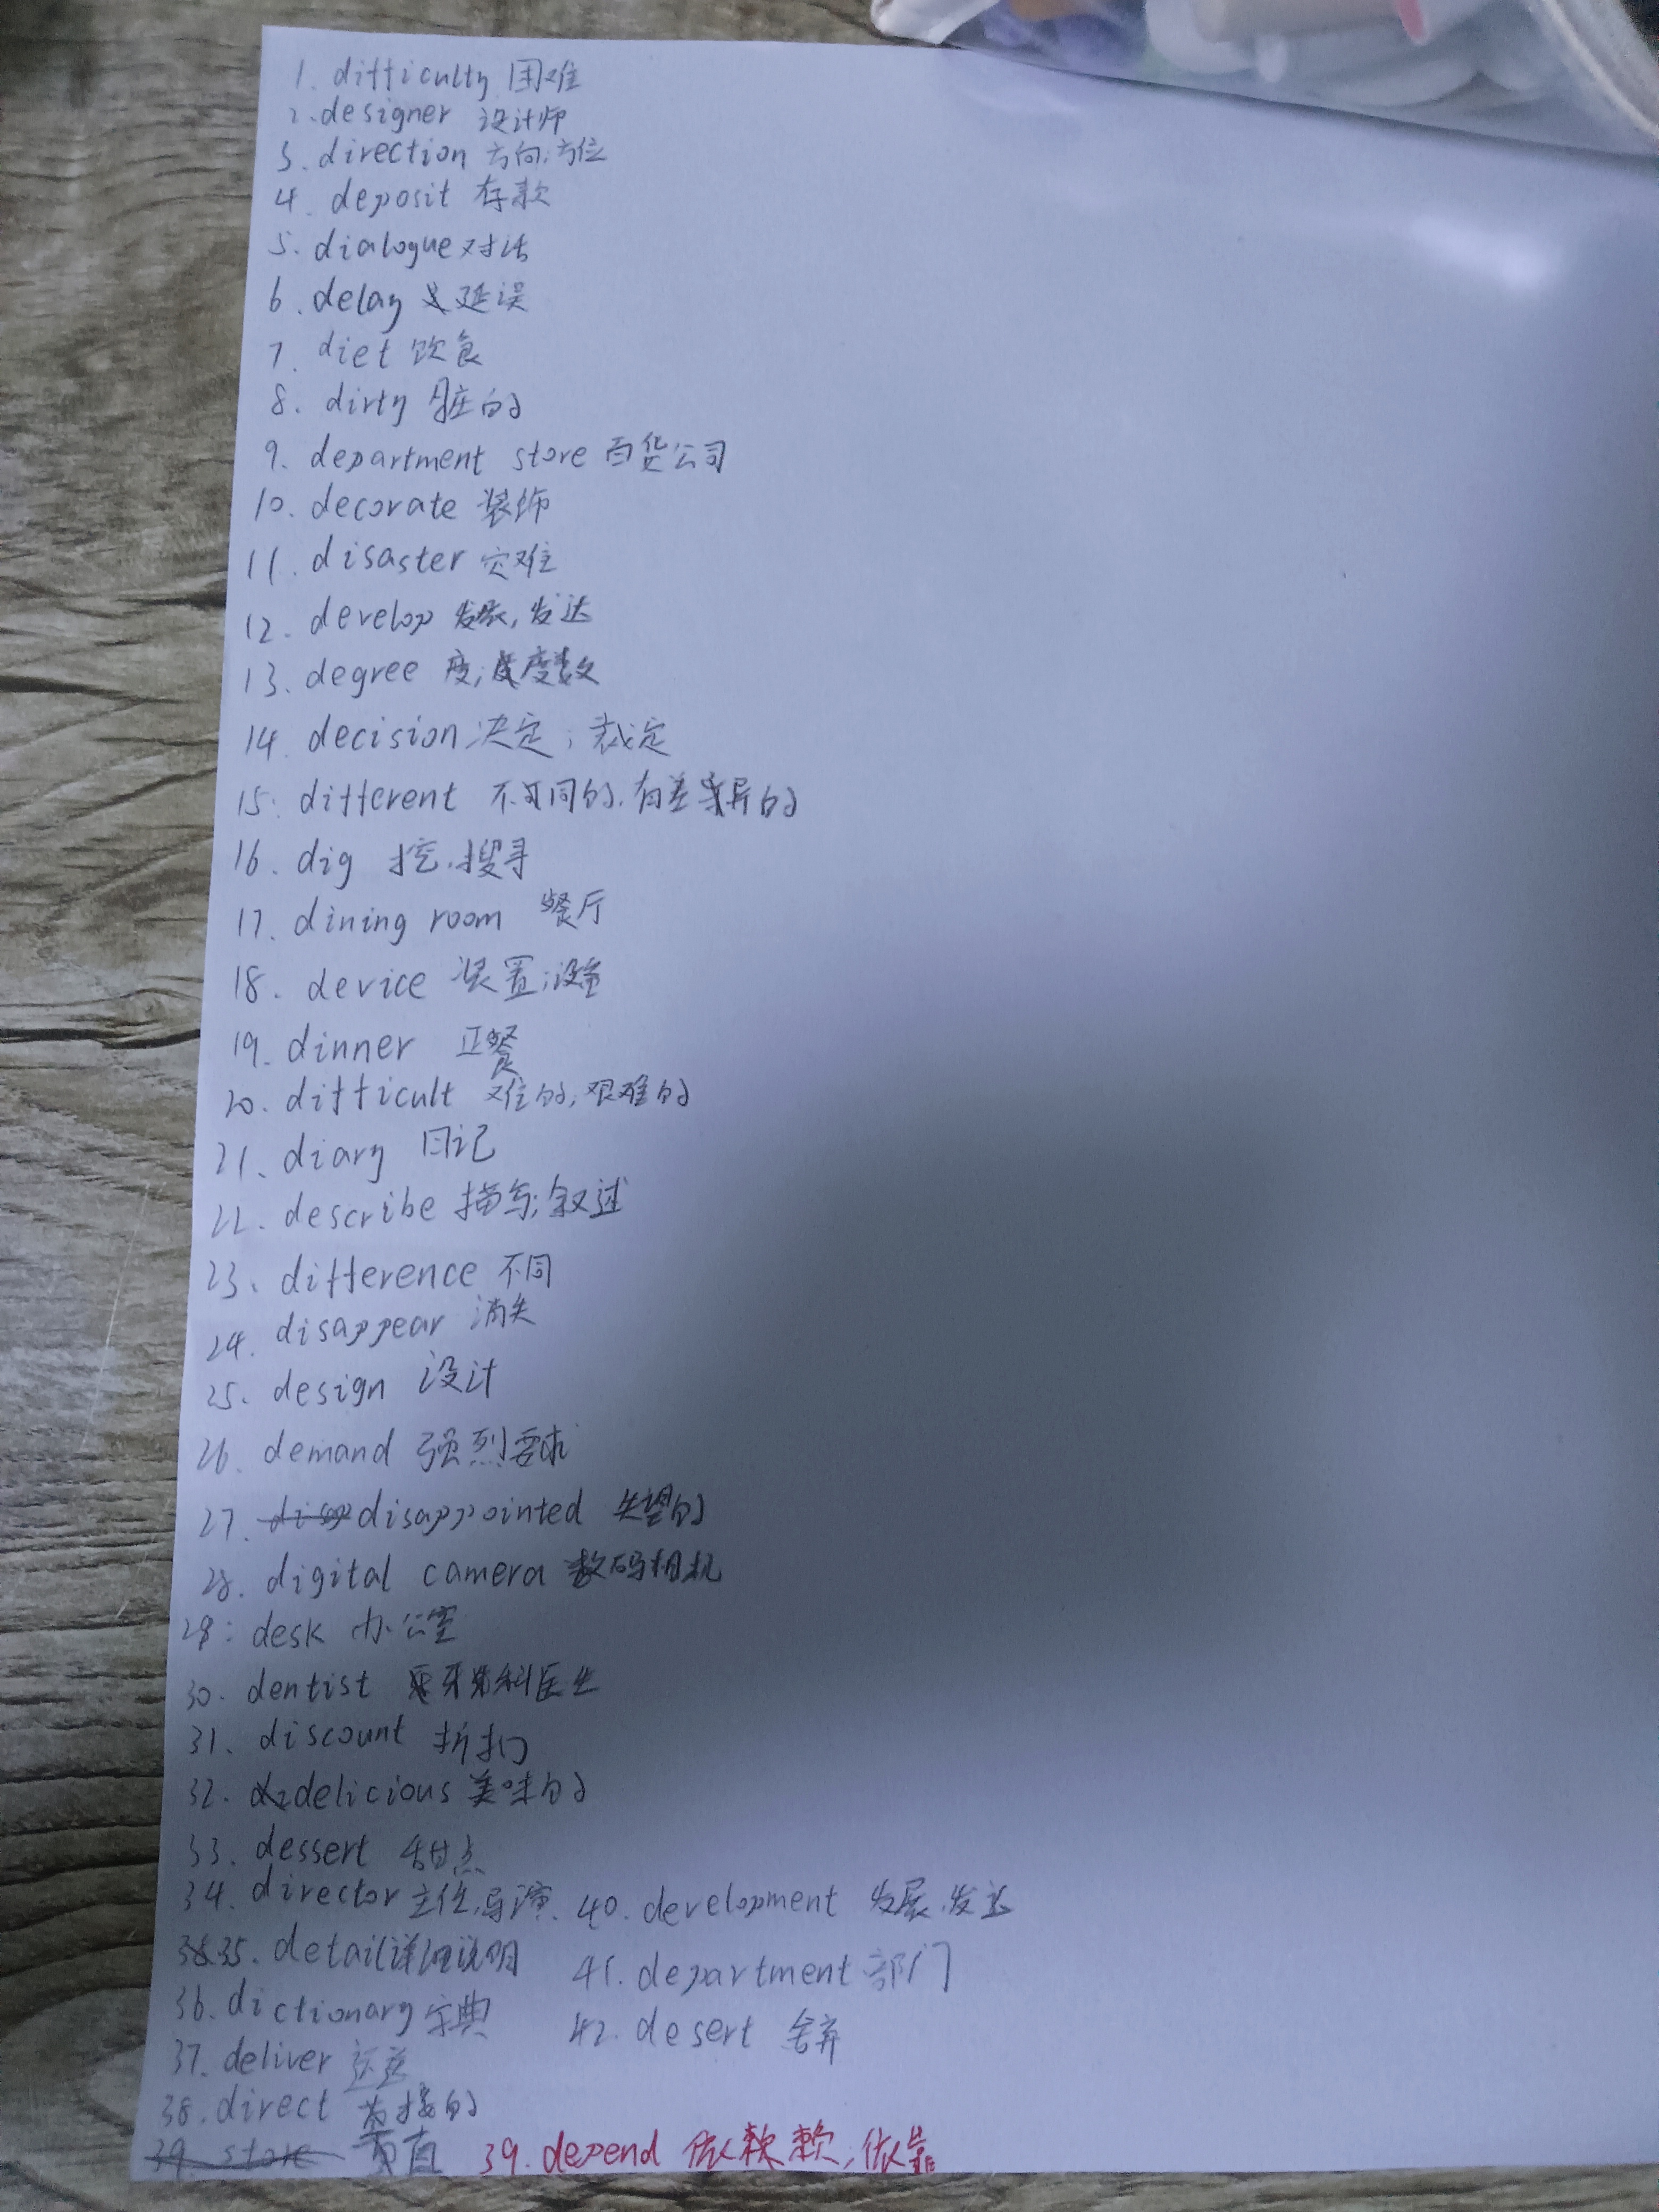 1. difficulty 困难
2. designer 设计师
3. direction 方向;方位
4. deposit 存款
5. dialogue 对话
6. delay 延误
7. diet 饮食
8. dirty 脏的
9. department store 百货公司
10. decorate 装饰
11. disaster 灾难
12. develop 发展,发达
13. degree 度;度数
14. decision 决定;裁定
15. different 不同的,有差异的
16. dig 挖,搜寻
17. dining room 餐厅
18. device 装置;设备
19. dinner 正餐
20. difficult 难的,艰难的
21. diary 日记
22. describe 描写;叙述
23. difference 不同
24. disappear 消失
25. design 设计
26. demand 强烈要求
27. disappointed 失望的
28. digital camera 数码相机
29. desk 办公室
30. dentist 牙科医生
31. discount 折扣
32. delicious 美味的
33. dessert 甜点
34. director 主任,导演 40. development 发展,发达
35. detail 详细说明 41. department 部门
36. dictionary 字典 42. desert 舍弃
37. deliver 运送
38. direct 直接的
39. store 39. depend 依赖;依靠